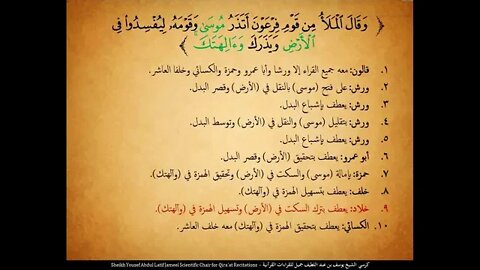 ﴿ وَقَالَ ٱلۡمَلَأُ مِن قَوۡمِ فِرۡعَوۡنَ أَتَذَرُ مُوسَىٰ وَقَوۡمَهُۥ لِيُفۡسِدُواْ فِي
ٱلۡأَرۡضِ وَيَذَرَكَ وَءَالِهَتَكَ ﴾
١. قالون: معه جميع القراء إلا ورشا وأبا عمرو وحمزة والكسائي وخلفا العاشر.
٢. ورش: على فتح (موسى) بالنقل في (الأرض) وقصر البدل.
٣. ورش: يعطف بإشباع البدل.
٤. ورش: بتقليل (موسى) والنقل في (الأرض) وتوسط البدل.
٥. ورش: يعطف بإشباع البدل.
٦. أبو عمرو: يعطف بتحقيق (الأرض) وقصر البدل.
٧. حمزة: بإمالة (موسى) والسكت في (الأرض) وتحقيق الهمزة في (وآلهتك).
٨. خلف: يعطف بتسهيل الهمزة في (وآلهتك).
٩. خلاد: يعطف بترك السكت في (الأرض) وتسهيل الهمزة في (وآلهتك).
١٠. الكسائي: يعطف بتحقيق الهمزة في (وآلهتك) معه خلف العاشر.
كرسي الشيخ يوسف بن عبد اللطيف جميل للقراءات القرآنية - Sheikh Yousef Abdul Latif Jameel Scientific Chair for Qira'at Recitations